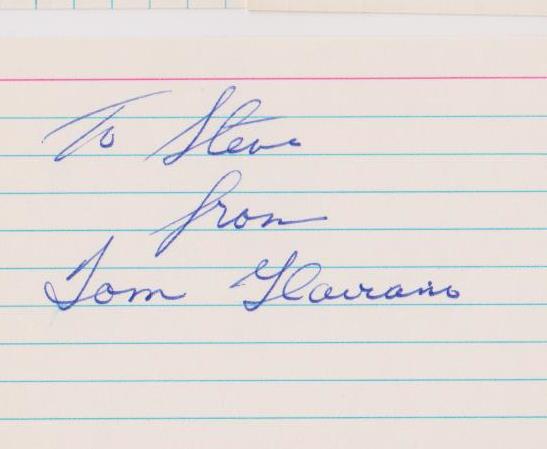 To Steve
from
Tom